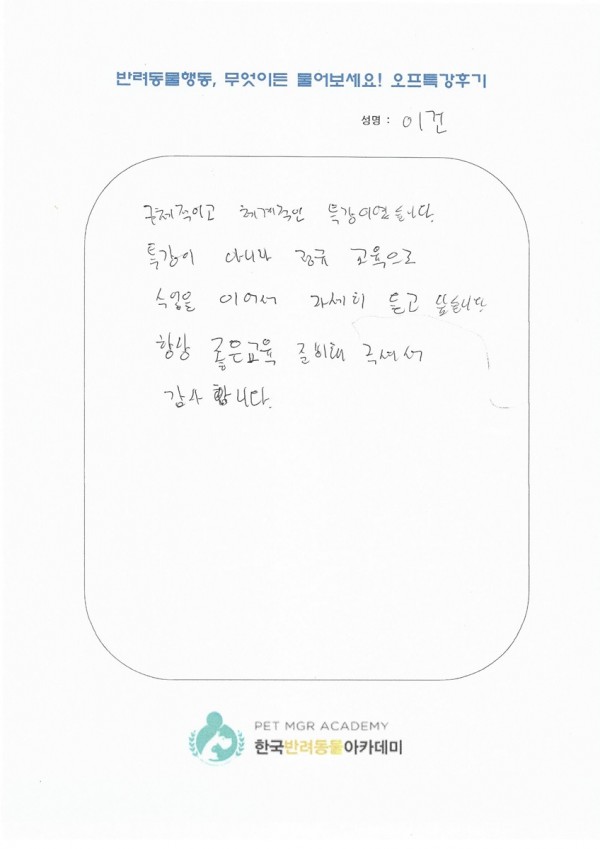 반려동물행동, 무엇이든 물어보세요! 오프특강후기
성명 : 이건
구체적이고 체계적인 특강이였습니다.
특강이 아니라 정규 교육으로
수업을 이어서 자세히 듣고 싶습니다
항상 좋은교육 준비해 주셔서
감사합니다.
PET MGR ACADEMY
한국반려동물아카데미